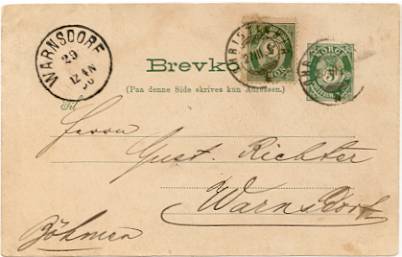 WARNSDORF
29
12 4 N
Brevko
(Paa denne Side skrives kun Adressen.)
Til
NORGE
Herrn
Gust. Richter
Warnsdorf
Böhmen